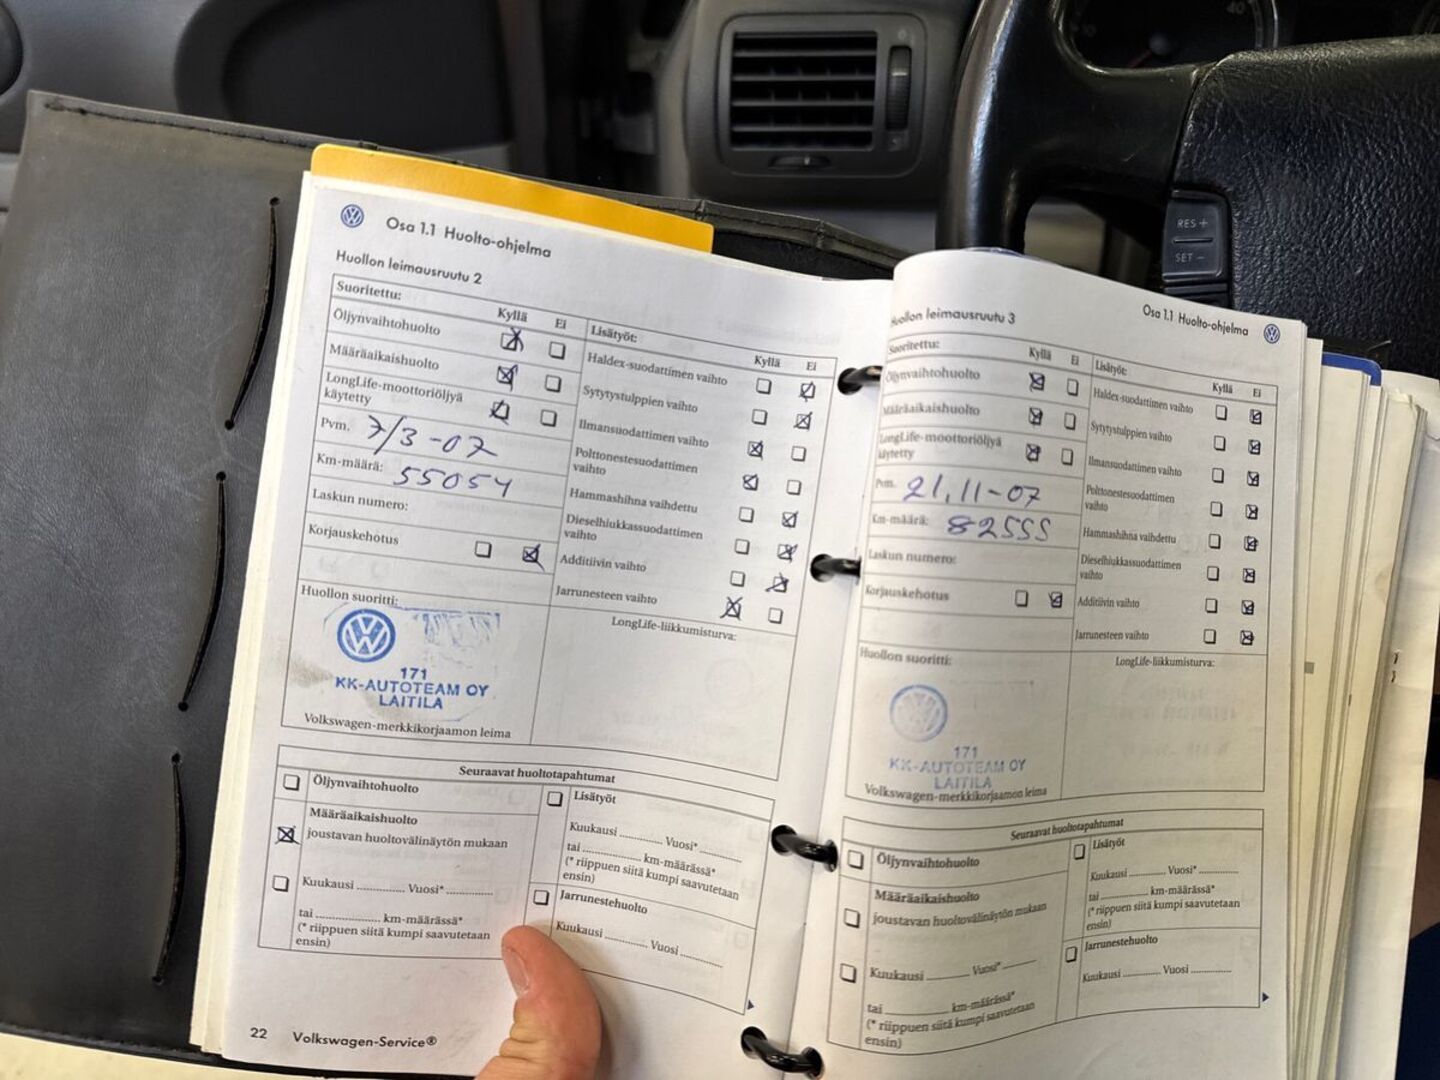 Osa 1.1 Huolto-ohjelma
Huollon leimausruutu 2
Suoritettu:
Kyllä Ei
Öljynvaihtohuolto
Määräaikaishuolto
LongLife-moottoriöljyä
käytetty
Pvm. 7/3-07
Km-määrä: 55054
Laskun numero:
Korjauskehotus
Lisätyöt:
Kyllä Ei
Haldex-suodattimen vaihto
Sytytystulppien vaihto
Ilmansuodattimen vaihto
Polttonestesuodattimen
vaihto
Hammashihna vaihdettu
Dieselhiukkassuodattimen
vaihto
Additiivin vaihto
Jarrunesteen vaihto
Huollon suoritti:
171
KK-AUTOTEAM OY
LAITILA
Volkswagen-merkkikorjaamon leima
LongLife-liikkumisturva:
Seuraavat huoltotapahtumat
Öljynvaihtohuolto
Määräaikaishuolto
joustavan huoltovälinäytön mukaan
Kuukausi .............. Vuosi* ..............
tai .................... km-määrässä*
(* riippuen siitä kumpi saavutetaan
ensin)
Lisätyöt
Kuukausi ............. Vuosi* .............
tai .................... km-määrässä*
(* riippuen siitä kumpi saavutetaan
ensin)
Jarrunestehuolto
Kuukausi ............. Vuosi .............
22 Volkswagen-Service®
Osa 1.1 Huolto-ohjelma
Huollon leimausruutu 3
Suoritettu:
Kyllä Ei
Öljynvaihtohuolto
Määräaikaishuolto
LongLife-moottoriöljyä
käytetty
Pvm. 21.11-07
Km-määrä: 82555
Laskun numero:
Korjauskehotus
Lisätyöt:
Kyllä Ei
Haldex-suodattimen vaihto
Sytytystulppien vaihto
Ilmansuodattimen vaihto
Polttonestesuodattimen
vaihto
Hammashihna vaihdettu
Dieselhiukkassuodattimen
vaihto
Additiivin vaihto
Jarrunesteen vaihto
Huollon suoritti:
171
KK-AUTOTEAM OY
LAITILA
Volkswagen-merkkikorjaamon leima
LongLife-liikkumisturva:
Seuraavat huoltotapahtumat
Öljynvaihtohuolto
Määräaikaishuolto
joustavan huoltovälinäytön mukaan
Kuukausi ............. Vuosi* .............
tai .................... km-määrässä*
(* riippuen siitä kumpi saavutetaan
ensin)
Lisätyöt
Kuukausi ............. Vuosi* .............
tai .................... km-määrässä*
(* riippuen siitä kumpi saavutetaan
ensin)
Jarrunestehuolto
Kuukausi ............. Vuosi .............
RES +
SET -
40